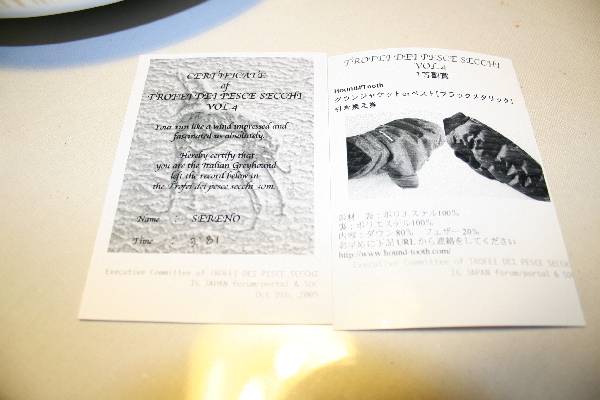 CERTIFICATE
of
TROFEI DEI PESCE SECCHI
VOL.4
Your run like a wind impressed and
fascinated us absolutely.
Hereby certify that
you are the Italian Greyhound
left the record below in
the Trofei dei pesce secchi 50m.
Name : SERENO
Time : 3"81
Executive Committee of TROFEI DEI PESCE SECCHI
IG JAPAN forum/portal & SOC
Oct 9th, 2005
TROFEI DEI PESCE SECCHI
VOL.4
Hound#Tooth
ダウンジャケット or ベスト[ブラックメタリック]
引き換え券
素材 表：ポリエステル100%
裏：ポリエステル100%
内容：ダウン 80% フェザー 20%
お早めに下記URLから連絡をしてください
http://www.hound-tooth.com/
Executive Committee of TROFEI DEI PESCE SECCHI
IG JAPAN forum/portal & SOC